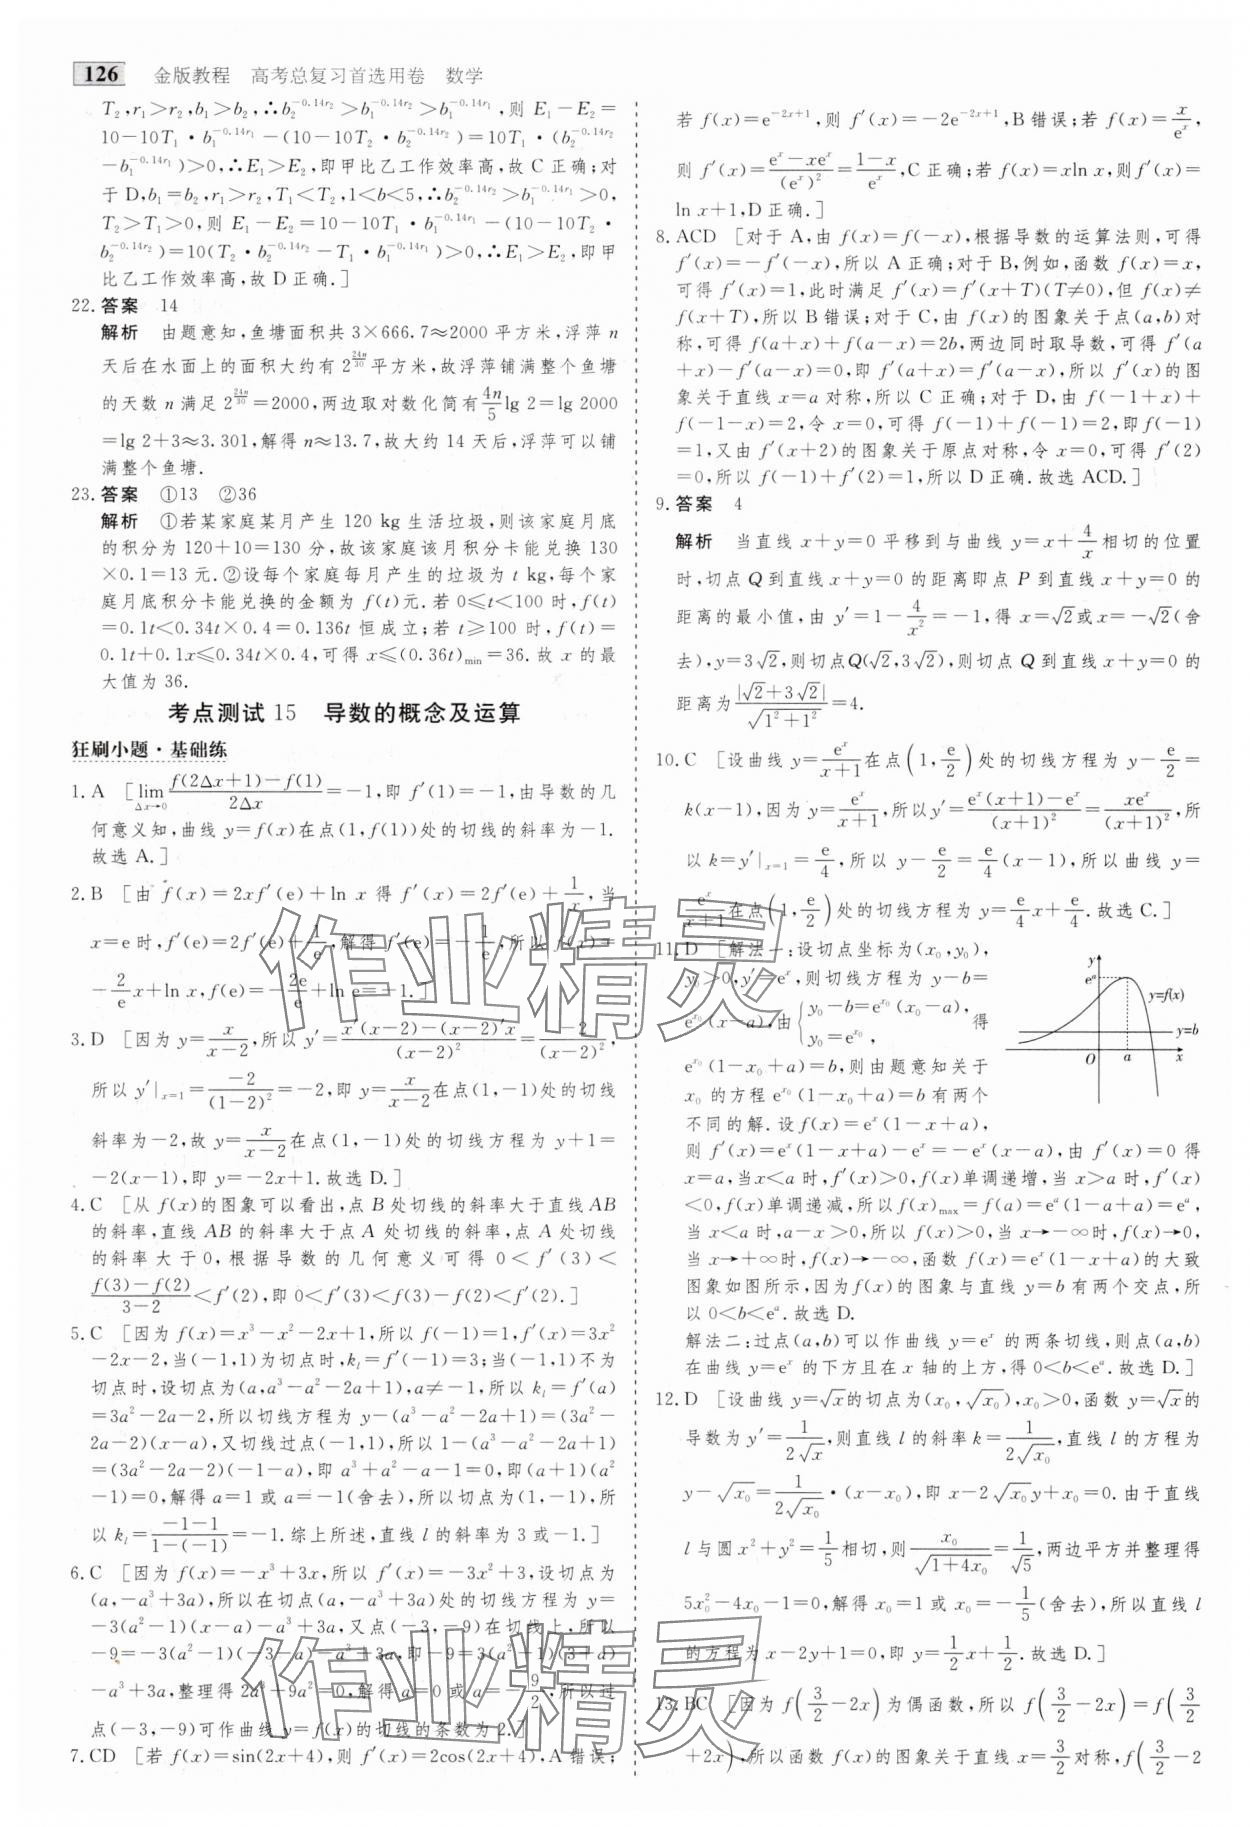 126 金版教程 高考总复习首选用卷 数学
T₂,r₁>r₂,b₁>b₂,∴b₂^{-0.14r₂}>b₁^{-0.14r₂}>b₁^{-0.14r₁},则 E₁-E₂=
10-10T₁·b₁^{-0.14r₁}-(10-10T₂·b₂^{-0.14r₂})=10T₁·(b₂^{-0.14r₂}
-b₁^{-0.14r₁})>0,∴E₁>E₂,即甲比乙工作效率高,故 C 正确;对
于 D,b₁=b₂,r₁>r₂,T₁<T₂,1<b<5,∴b₂^{-0.14r₂}>b₁^{-0.14r₁}>0,
T₂>T₁>0,则 E₁-E₂=10-10T₁·b₁^{-0.14r₁}-(10-10T₂·
b₂^{-0.14r₂})=10(T₂·b₂^{-0.14r₂}-T₁·b₁^{-0.14r₁})>0,∴E₁>E₂,即甲
比乙工作效率高,故 D 正确.]
22. 答案 14
解析 由题意知,鱼塘面积共 3×666.7≈2000 平方米,浮萍 n
天后在水面上的面积大约有 2^{24n/30} 平方米,故浮萍铺满整个鱼塘
的天数 n 满足 2^{24n/30}=2000,两边取对数化简有 4n/5 lg 2=lg 2000
=lg 2+3≈3.301,解得 n≈13.7,故大约 14 天后,浮萍可以铺
满整个鱼塘.
23. 答案 ①13 ②36
解析 ①若某家庭某月产生 120 kg 生活垃圾,则该家庭月底
的积分为 120+10=130 分,故该家庭该月积分卡能兑换 130
×0.1=13 元.②设每个家庭每月产生的垃圾为 t kg,每个家
庭月底积分卡能兑换的金额为 f(t)元.若 0≤t<100 时,f(t)
=0.1t<0.34t×0.4=0.136t 恒成立;若 t≥100 时,f(t)=
0.1t+0.1x≤0.34t×0.4,可得 x≤(0.36t)min=36.故 x 的最
大值为 36.
考点测试 15 导数的概念及运算
狂刷小题·基础练
1. A [lim_{Δx→0} (f(2Δx+1)-f(1))/(2Δx)=-1,即 f′(1)=-1,由导数的几
何意义知,曲线 y=f(x)在点(1,f(1))处的切线的斜率为-1.
故选 A.]
2. B [由 f(x)=2xf′(e)+ln x 得 f′(x)=2f′(e)+1/x,当
x=e 时,f′(e)=2f′(e)+1/e,解得 f′(e)=-1/e,所以 f(x)=
-2/e x+ln x,f(e)=-2e/e+ln e=-1.]
3. D [因为 y=x/(x-2),所以 y′=(x′(x-2)-(x-2)′x)/(x-2)²=-2/(x-2)²,
所以 y′|ₓ₌₁=-2/(1-2)²=-2,即 y=x/(x-2)在点(1,-1)处的切线
斜率为-2,故 y=x/(x-2)在点(1,-1)处的切线方程为 y+1=
-2(x-1),即 y=-2x+1.故选 D.]
4. C [从 f(x)的图象可以看出,点 B 处切线的斜率大于直线 AB
的斜率,直线 AB 的斜率大于点 A 处切线的斜率,点 A 处切线
的斜率大于 0,根据导数的几何意义可得 0<f′(3)<
(f(3)-f(2))/(3-2)<f′(2),即 0<f′(3)<f(3)-f(2)<f′(2).]
5. C [因为 f(x)=x³-x²-2x+1,所以 f(-1)=1,f′(x)=3x²
-2x-2,当(-1,1)为切点时,k_l=f′(-1)=3;当(-1,1)不为
切点时,设切点为(a,a³-a²-2a+1),a≠-1,所以 k_l=f′(a)
=3a²-2a-2,所以切线方程为 y-(a³-a²-2a+1)=(3a²-
2a-2)(x-a),又切线过点(-1,1),所以 1-(a³-a²-2a+1)
=(3a²-2a-2)(-1-a),即 a³+a²-a-1=0,即(a+1)(a²
-1)=0,解得 a=1 或 a=-1(舍去),所以切点为(1,-1),所
以 k_l=(-1-1)/(1-(-1))=-1.综上所述,直线 l 的斜率为 3 或-1.]
6. C [因为 f(x)=-x³+3x,所以 f′(x)=-3x²+3,设切点为
(a,-a³+3a),所以在切点(a,-a³+3a)处的切线方程为 y=
-3(a²-1)(x-a)-a³+3a,又点(-3,-9)在切线上,所以
-9=-3(a²-1)(-3-a)-a³+3a,即-9=3(a²-1)(3+a)
-a³+3a,整理得 2a³+9a²=0,解得 a=0 或 a=-9/2,所以过
点(-3,-9)可作曲线 y=f(x)的切线的条数为 2.]
7. CD [若 f(x)=sin(2x+4),则 f′(x)=2cos(2x+4),A 错误;
若 f(x)=e^{-2x+1},则 f′(x)=-2e^{-2x+1},B 错误;若 f(x)=x/eˣ,
则 f′(x)=(eˣ-xeˣ)/(eˣ)²=(1-x)/eˣ,C 正确;若 f(x)=xln x,则 f′(x)=
ln x+1,D 正确.]
8. ACD [对于 A,由 f(x)=f(-x),根据导数的运算法则,可得
f′(x)=-f′(-x),所以 A 正确;对于 B,例如,函数 f(x)=x,
可得 f′(x)=1,此时满足 f′(x)=f′(x+T)(T≠0),但 f(x)≠
f(x+T),所以 B 错误;对于 C,由 f(x)的图象关于点(a,b)对
称,可得 f(a+x)+f(a-x)=2b,两边同时取导数,可得 f′(a
+x)-f′(a-x)=0,即 f′(a+x)=f′(a-x),所以 f′(x)的图
象关于直线 x=a 对称,所以 C 正确;对于 D,由 f(-1+x)+
f(-1-x)=2,令 x=0,可得 f(-1)+f(-1)=2,即 f(-1)
=1,又由 f′(x+2)的图象关于原点对称,令 x=0,可得 f′(2)
=0,所以 f(-1)+f′(2)=1,所以 D 正确.故选 ACD.]
9. 答案 4
解析 当直线 x+y=0 平移到与曲线 y=x+4/x 相切的位置
时,切点 Q 到直线 x+y=0 的距离即点 P 到直线 x+y=0 的
距离的最小值,由 y′=1-4/x²=-1,得 x=√2或 x=-√2(舍
去),y=3√2,则切点Q(√2,3√2),则切点 Q 到直线 x+y=0 的
距离为|√2+3√2|/√(1²+1²)=4.
10. C [设曲线 y=eˣ/(x+1)在点(1,e/2)处的切线方程为 y-e/2=
k(x-1),因为 y=eˣ/(x+1),所以y′=(eˣ(x+1)-eˣ)/(x+1)²=xeˣ/(x+1)²,所
以 k=y′|ₓ₌₁=e/4,所以 y-e/2=e/4(x-1),所以曲线 y=
eˣ/(x+1)在点(1,e/2)处的切线方程为 y=e/4 x+e/4.故选 C.]
11. D [解法一:设切点坐标为(x₀,y₀),
y₀>0,y′=eˣ,则切线方程为 y-b=
e^{x₀}(x-a),由{y₀-b=e^{x₀}(x₀-a), y₀=e^{x₀}, 得
e^{x₀}(1-x₀+a)=b,则由题意知关于
x₀ 的方程 e^{x₀}(1-x₀+a)=b 有两个
不同的解.设 f(x)=eˣ(1-x+a),
y eᵃ y=f(x) y=b O a x
则 f′(x)=eˣ(1-x+a)-eˣ=-eˣ(x-a),由 f′(x)=0 得
x=a,当x<a 时,f′(x)>0,f(x)单调递增,当 x>a 时,f′(x)
<0,f(x)单调递减,所以 f(x)max=f(a)=eᵃ(1-a+a)=eᵃ,
当 x<a 时,a-x>0,所以 f(x)>0,当 x→-∞时,f(x)→0,
当 x→+∞时,f(x)→-∞,函数 f(x)=eˣ(1-x+a)的大致
图象如图所示,因为 f(x)的图象与直线 y=b 有两个交点,所
以 0<b<eᵃ.故选 D.
解法二:过点(a,b)可以作曲线 y=eˣ 的两条切线,则点(a,b)
在曲线 y=eˣ 的下方且在 x 轴的上方,得 0<b<eᵃ.故选 D.]
12. D [设曲线 y=√x的切点为(x₀,√x₀),x₀>0,函数 y=√x的
导数为 y′=1/(2√x),则直线 l 的斜率 k=1/(2√x₀),直线 l 的方程为
y-√x₀=1/(2√x₀)·(x-x₀),即 x-2√x₀y+x₀=0.由于直线
l 与圆 x²+y²=1/5相切,则x₀/√(1+4x₀)=1/√5,两边平方并整理得
5x₀²-4x₀-1=0,解得 x₀=1 或 x₀=-1/5(舍去),所以直线 l
的方程为 x-2y+1=0,即 y=1/2 x+1/2.故选 D.]
13. BC [因为 f(3/2-2x)为偶函数,所以 f(3/2-2x)=f(3/2
+2x),所以函数 f(x)的图象关于直线 x=3/2对称,f(3/2-2
作业精灵
作业精灵